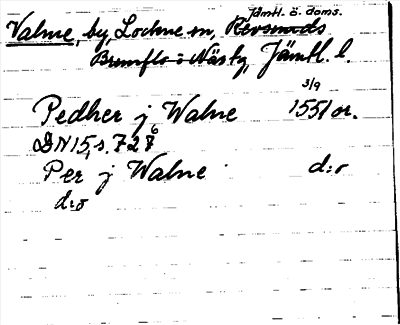 Jämtl. ö. doms.
Valne, by, Lockne sn, Revsunds
Brunflo o Näs tg, Jämtl. l.
3/9
Pedher j Walne 1551 or.
DN 15, s. 728
6
Per j Walne d:o
d:o